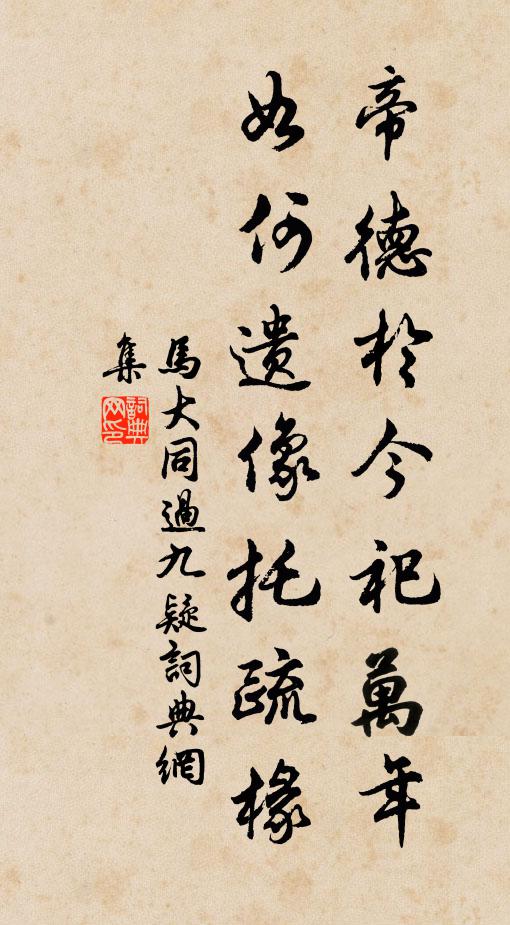 帝德於今祀萬年
如何遺像托疏椽
馬大同過九疑詞典網
集
詞典網印